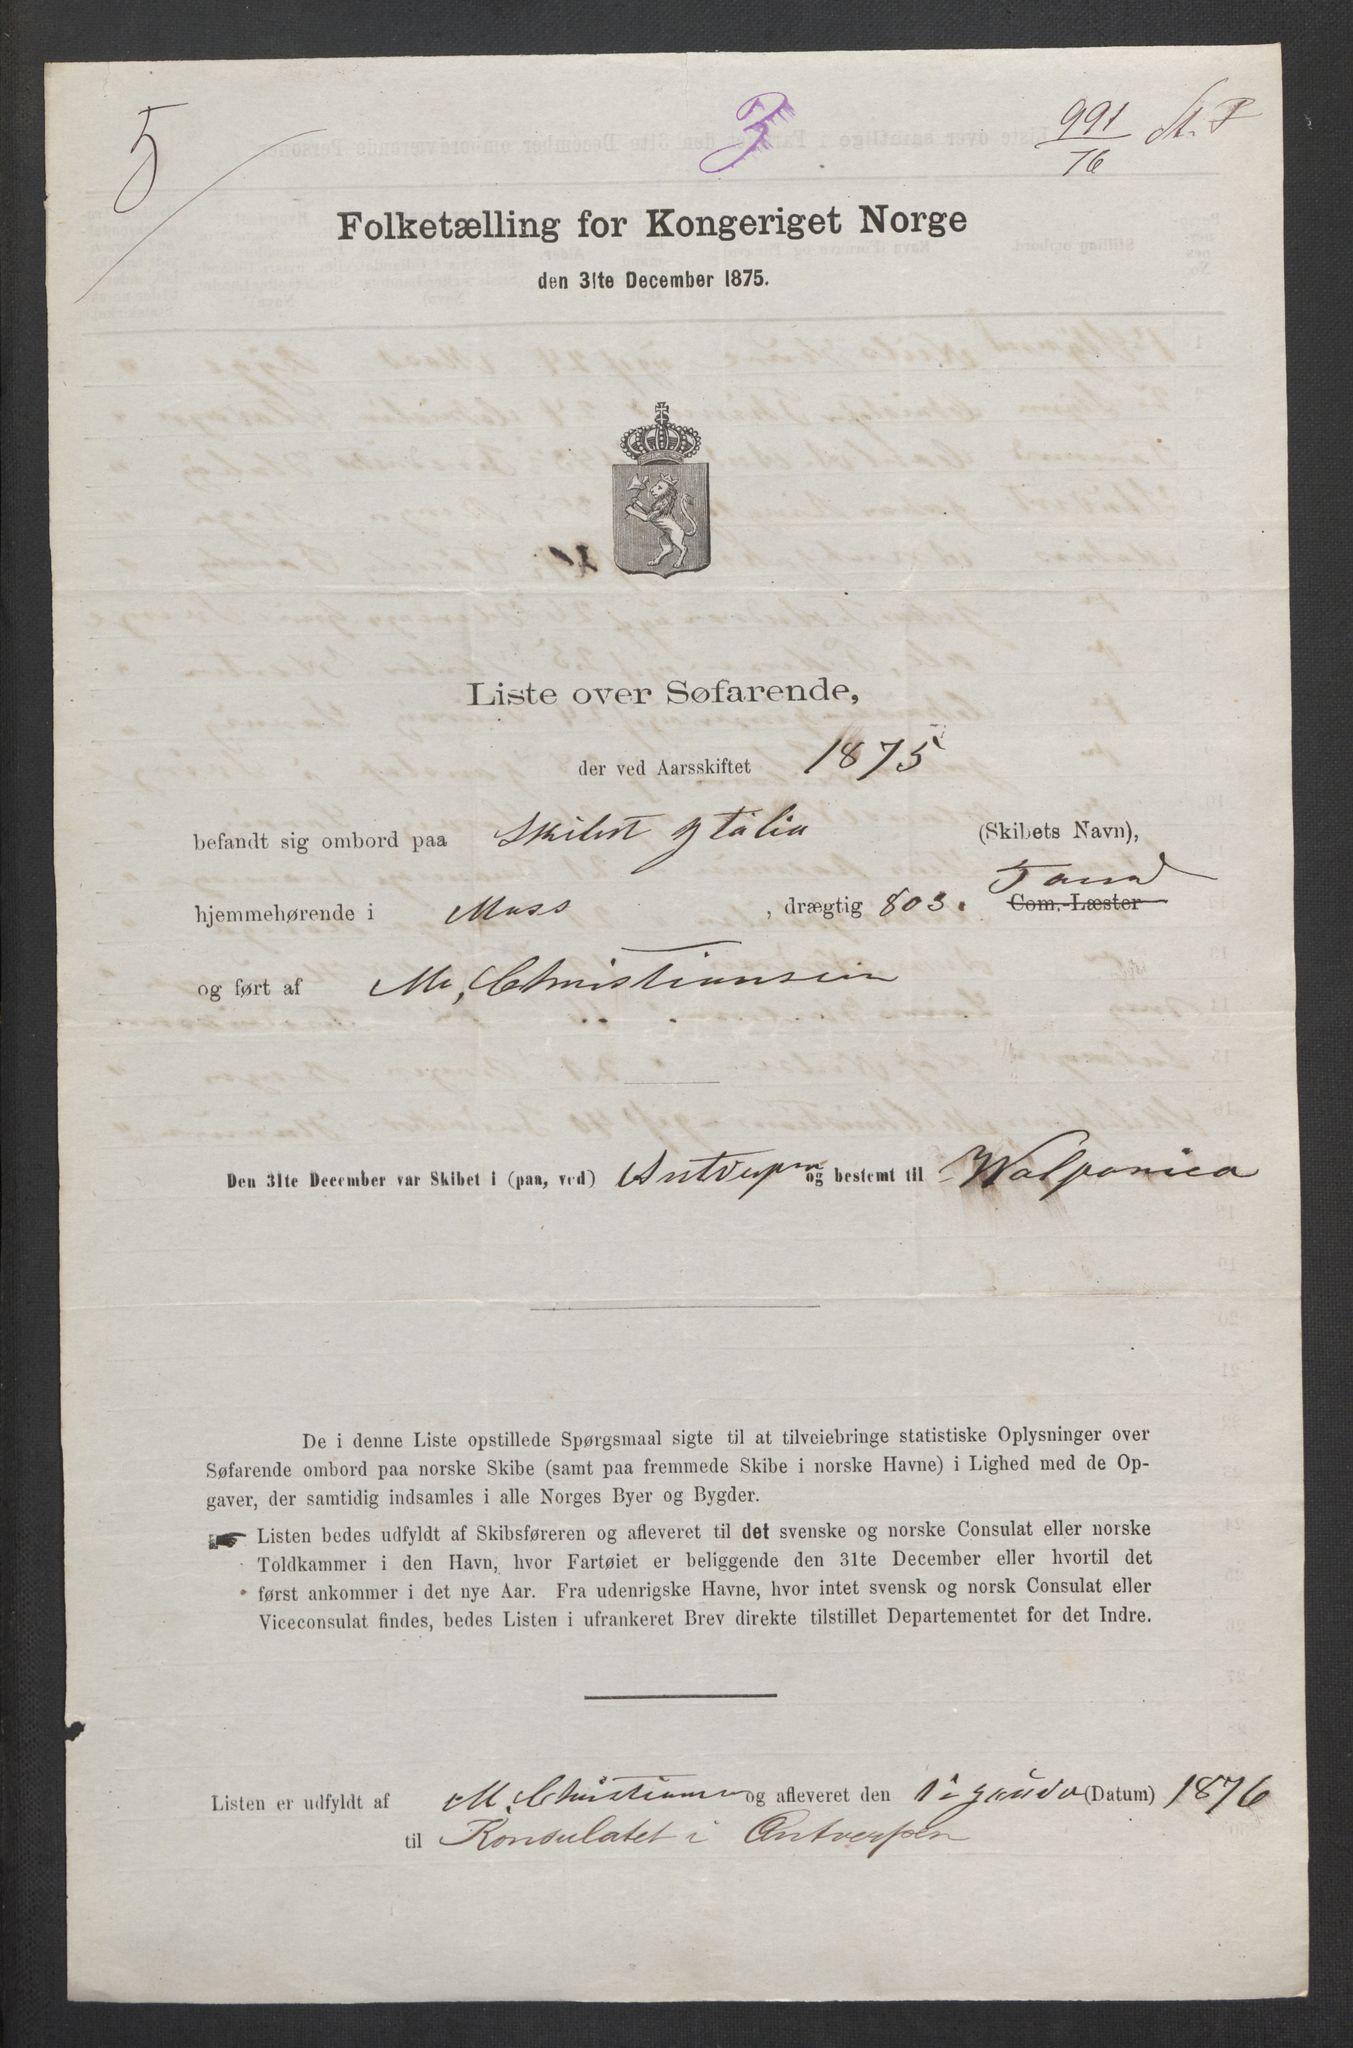 5
3
991
76
Folketælling for Kongeriget Norge
den 31te December 1875.
Liste over Søfarende,
der ved Aarsskiftet 1875
befandt sig ombord paa Skibet Italia (Skibets Navn),
hjemmehørende i Moss, drægtig 803. Tons Com.-Læster
og ført af M. Christiansen
Den 31te December var Skibet i (paa, ved) Antverpen og bestemt til Walparica
De i denne Liste opstillede Spørgsmaal sigte til at tilveiebringe statistiske Oplysninger over
Søfarende ombord paa norske Skibe (samt paa fremmede Skibe i norske Havne) i Lighed med de Op-
gaver, der samtidig indsamles i alle Norges Byer og Bygder.
Listen bedes udfyldt af Skibsføreren og afleveret til det svenske og norske Consulat eller norske
Toldkammer i den Havn, hvor Fartøiet er beliggende den 31te December eller hvortil det
først ankommer i det nye Aar. Fra udenrigske Havne, hvor intet svensk og norsk Consulat eller
Viceconsulat findes, bedes Listen i ufrankeret Brev direkte tilstillet Departementet for det Indre.
Listen er udfyldt af M. Christiansen og afleveret den (Datum) 1876
til Konsulatet i Antverpen